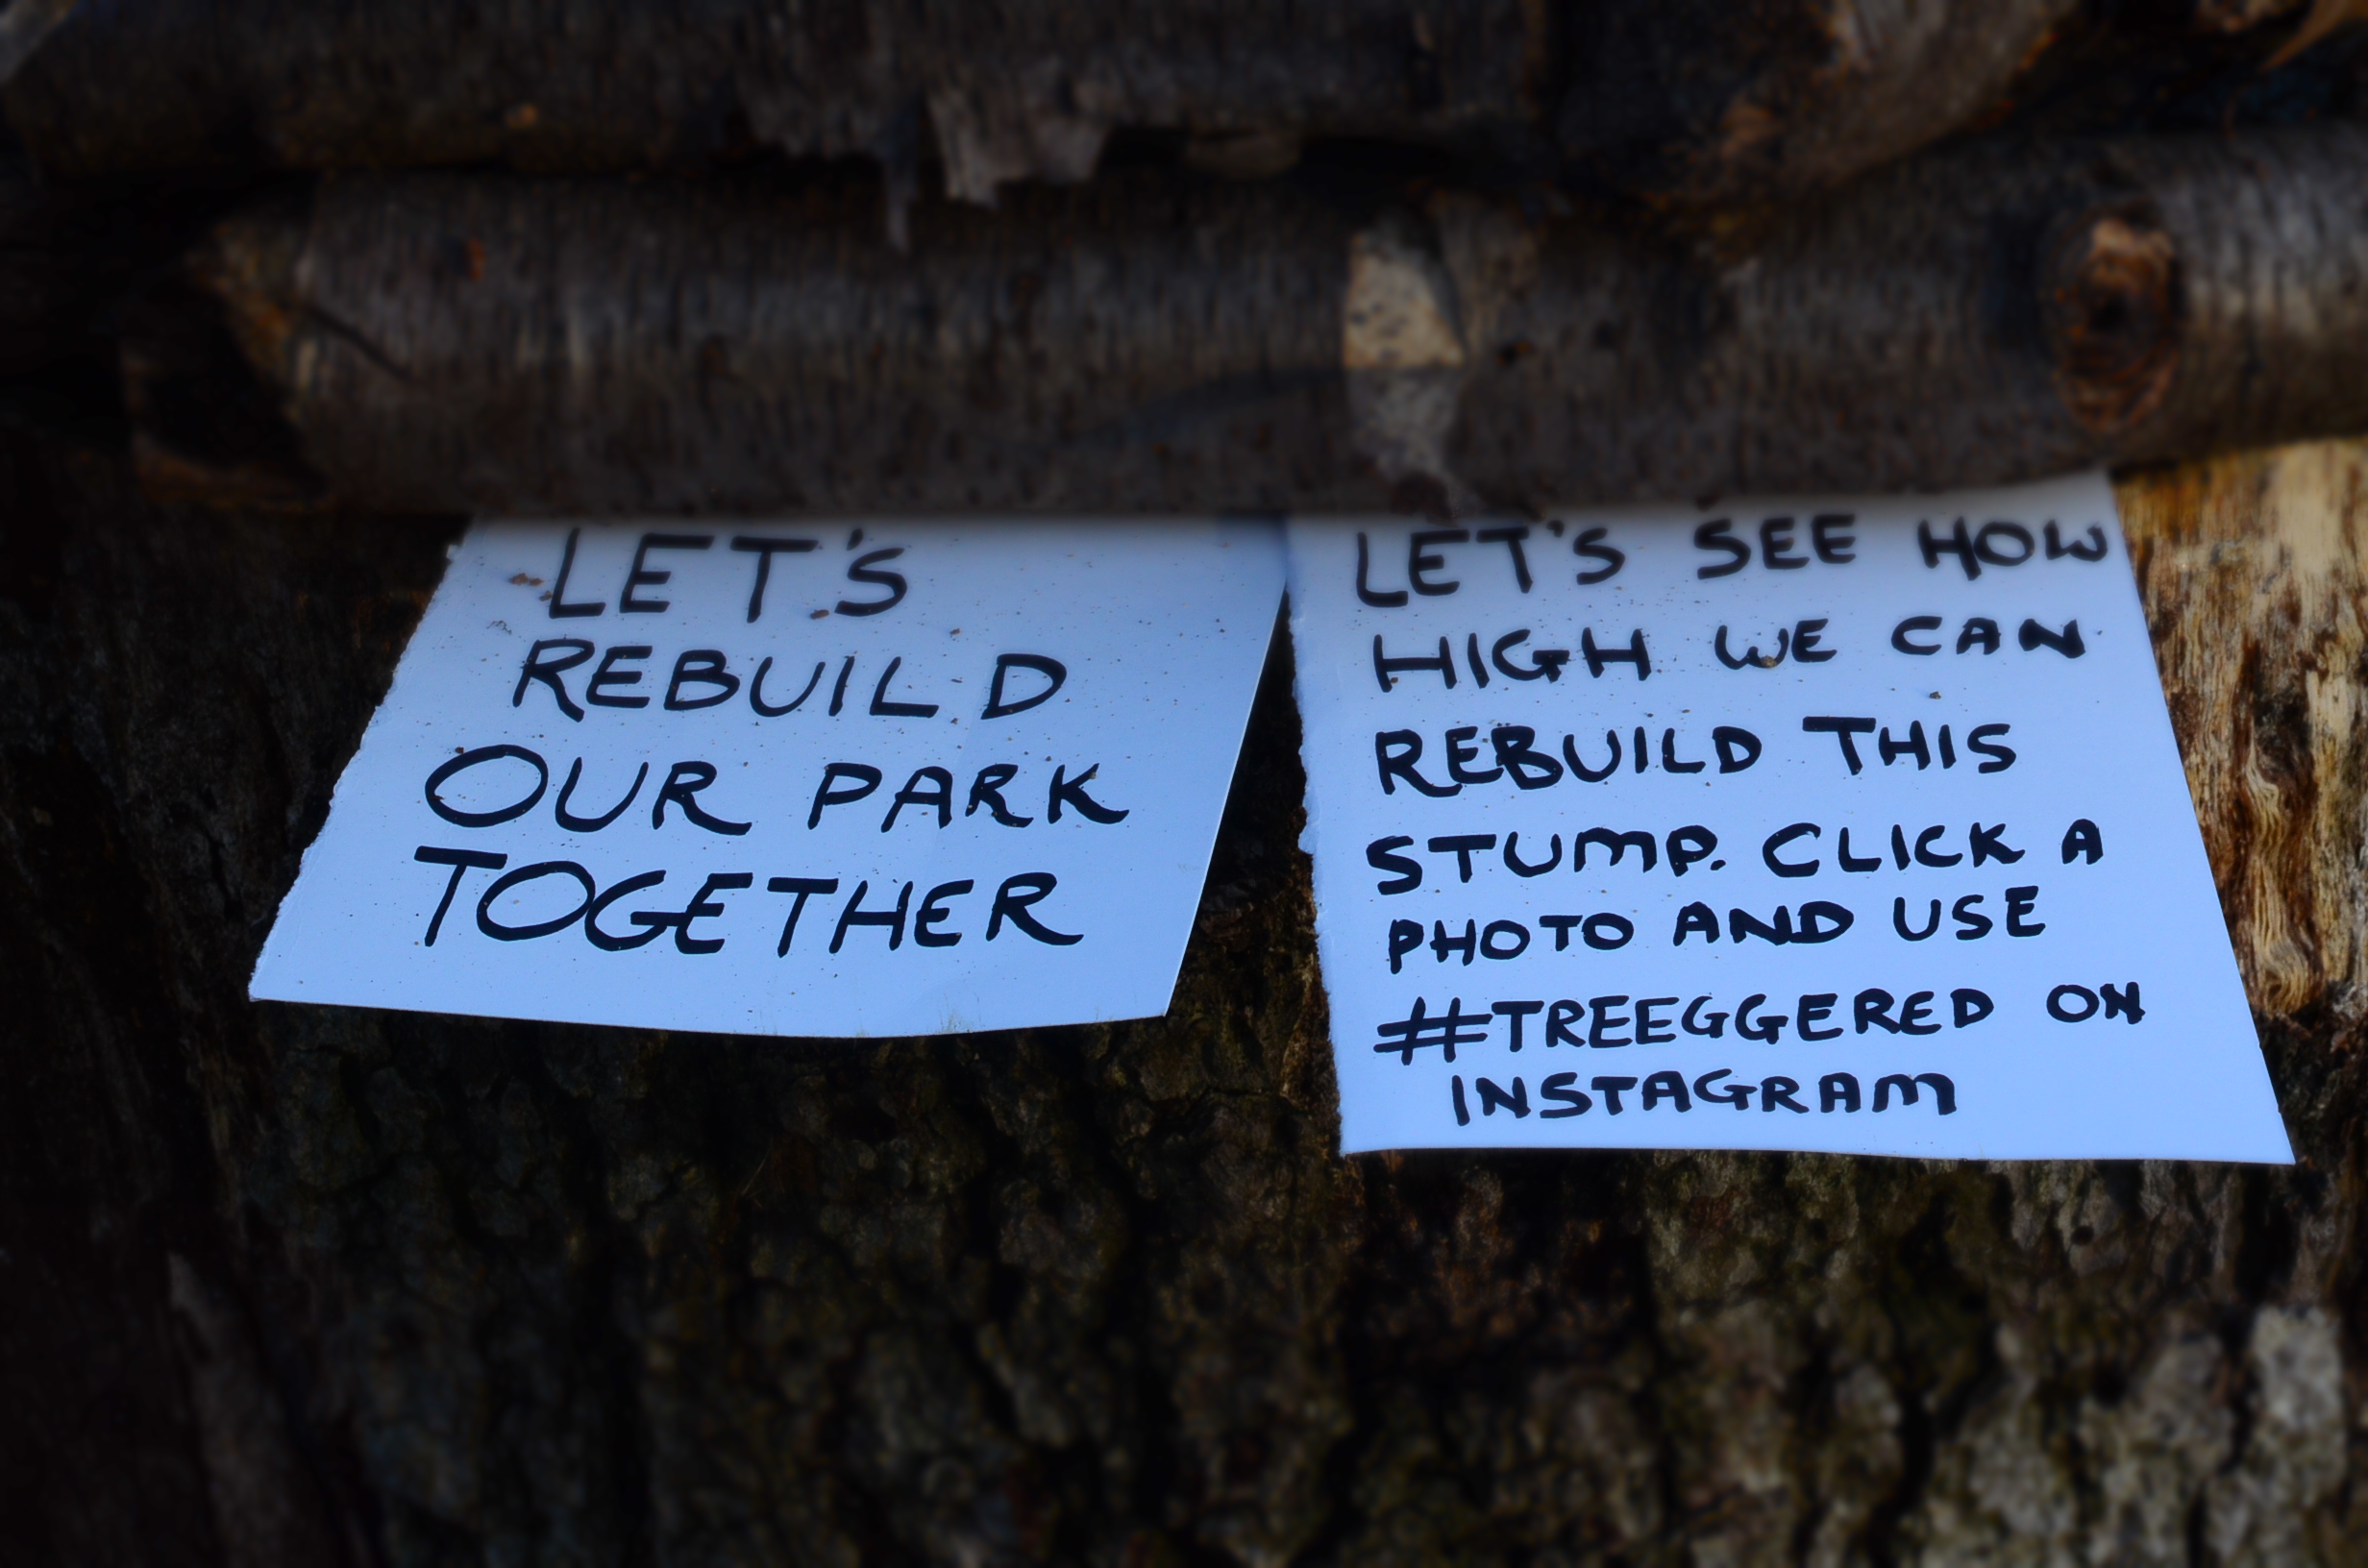 LET'S
REBUILD
OUR PARK
TOGETHER
LET'S SEE HOW
HIGH WE CAN
REBUILD THIS
STUMP. CLICK A
PHOTO AND USE
#TREEGGERED ON
INSTAGRAM